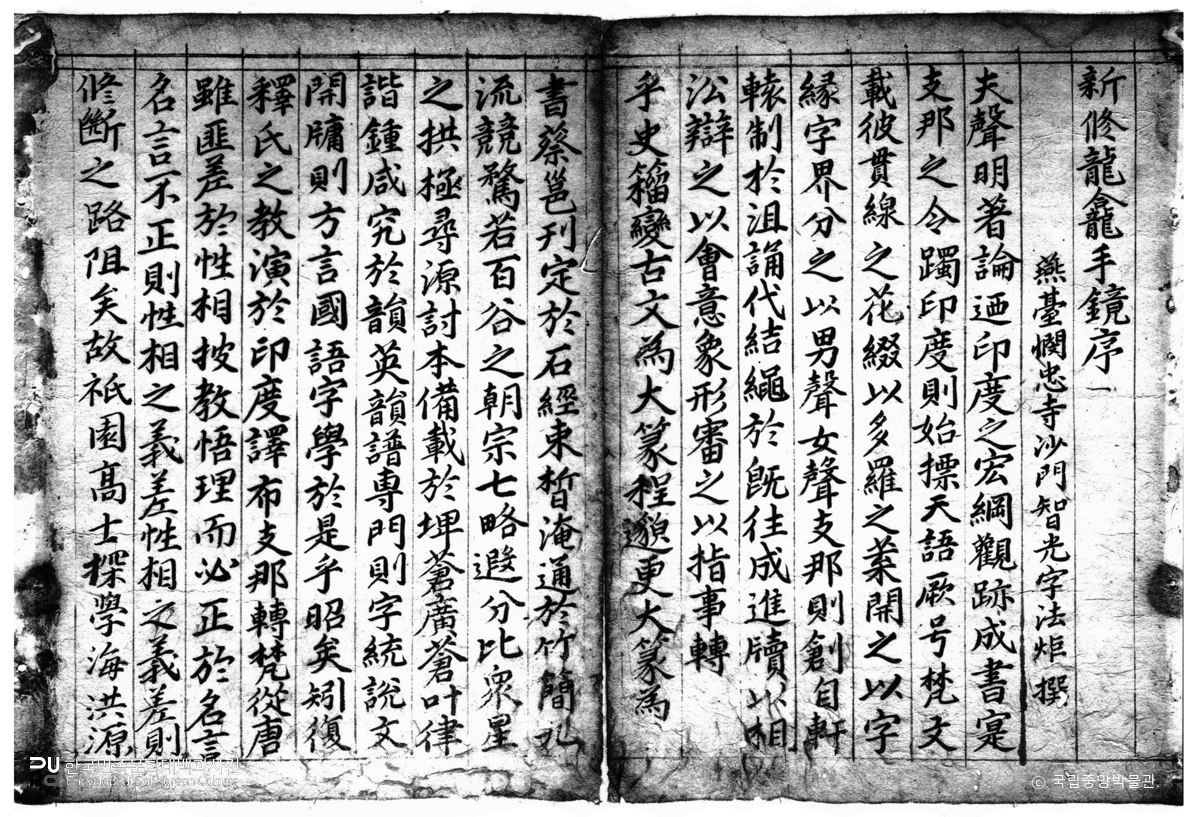 新修龍龕手鏡序一
燕臺憫忠寺沙門智光字法炬撰
夫聲明著論迺印度之宏綱觀跡成書寔
支那之令躅印度則始摽天語厥号梵文
載彼貫線之花綴以多羅之葉開之以字
緣字界分之以男聲女聲支那則創自軒
轅制於沮誦代結繩於旣往成進牘以相
訟辯之以會意象形審之以指事轉
乎史籒變古文爲大篆程邈更大篆爲
書蔡邕刊定於石經束晳淹通於竹簡九
流競騖若百谷之朝宗七略遐分比衆星
之拱極尋源討本備載於埤蒼廣蒼叶律
諧鍾咸究於韻英韻譜專門則字統說文
開牗則方言國語字學於是乎昭矣矧復
釋氏之教演於印度譯布支那轉梵從唐
雖匪差於性相按教悟理而必正於名言
名言不正則性相之義差性相之義差則
修斷之路阻矣故祇園高士探學海洪源
한국민족문화대백과사전
Encyclopedia of Korean Culture
ⓒ 국립중앙박물관.